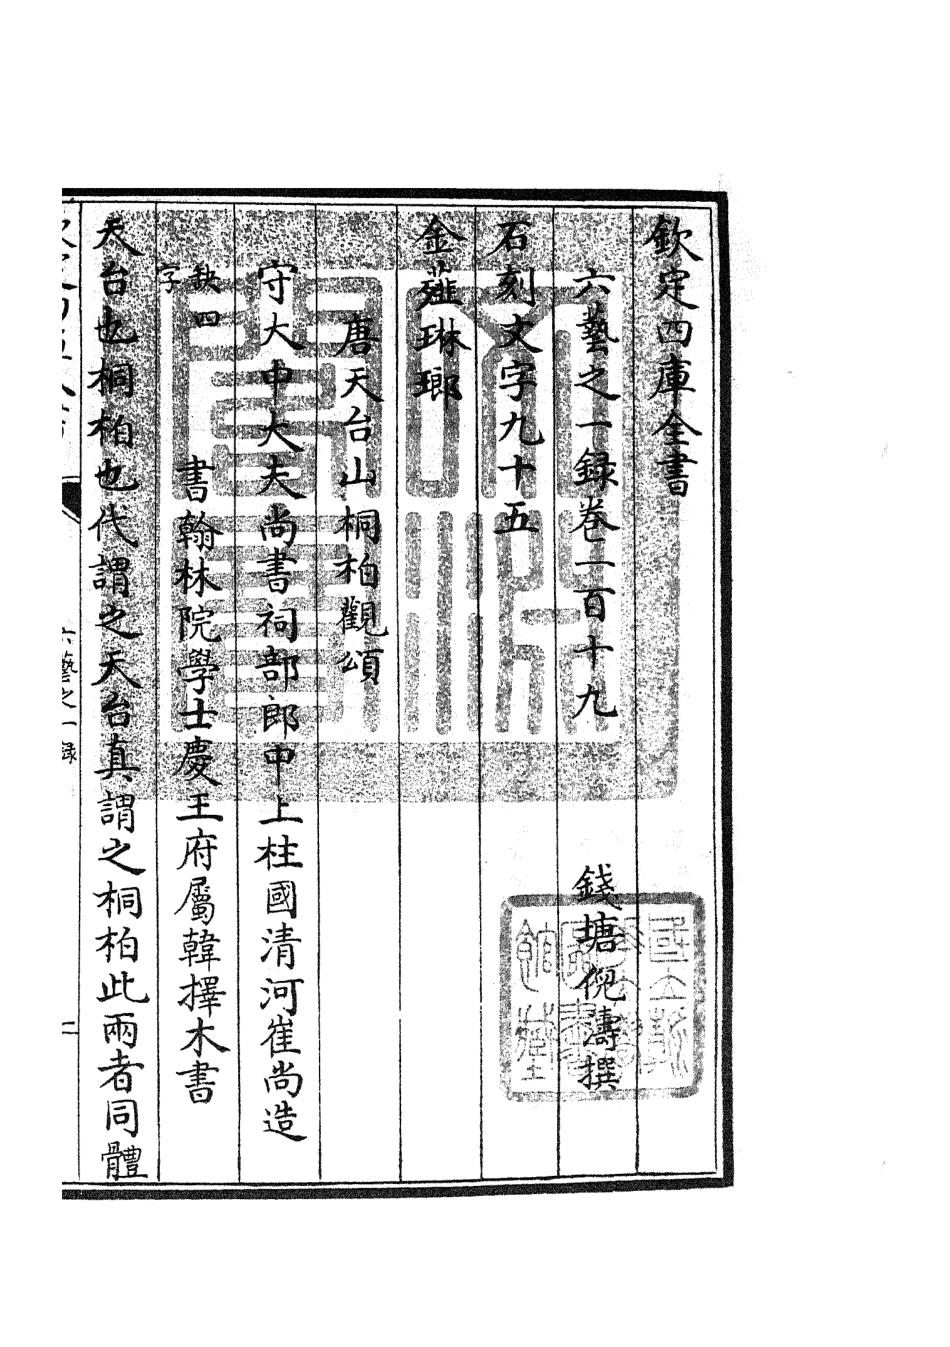 欽定四庫全書
六藝之一録卷一百十九
錢塘倪濤撰
石刻文字九十五
金薤琳瑯
唐天台山桐柏觀頌
守大中大夫尚書祠部郎中上柱國清河崔尚造
缺四字
書翰林院學士慶王府屬韓擇木書
天台也桐柏也代謂之天台真謂之桐柏此兩者同體
六藝之一録